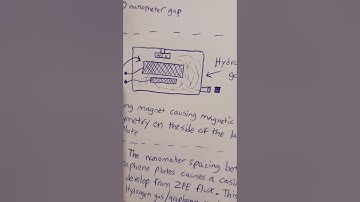 nanometer gap
Hydro
ga
ng magnet causing magnetic
ymmetry on the side of the la
late
The nanometer spacing bet
aphene plates causes a casi
develop from ZPE flux. This
Hydrogen gas/graphene